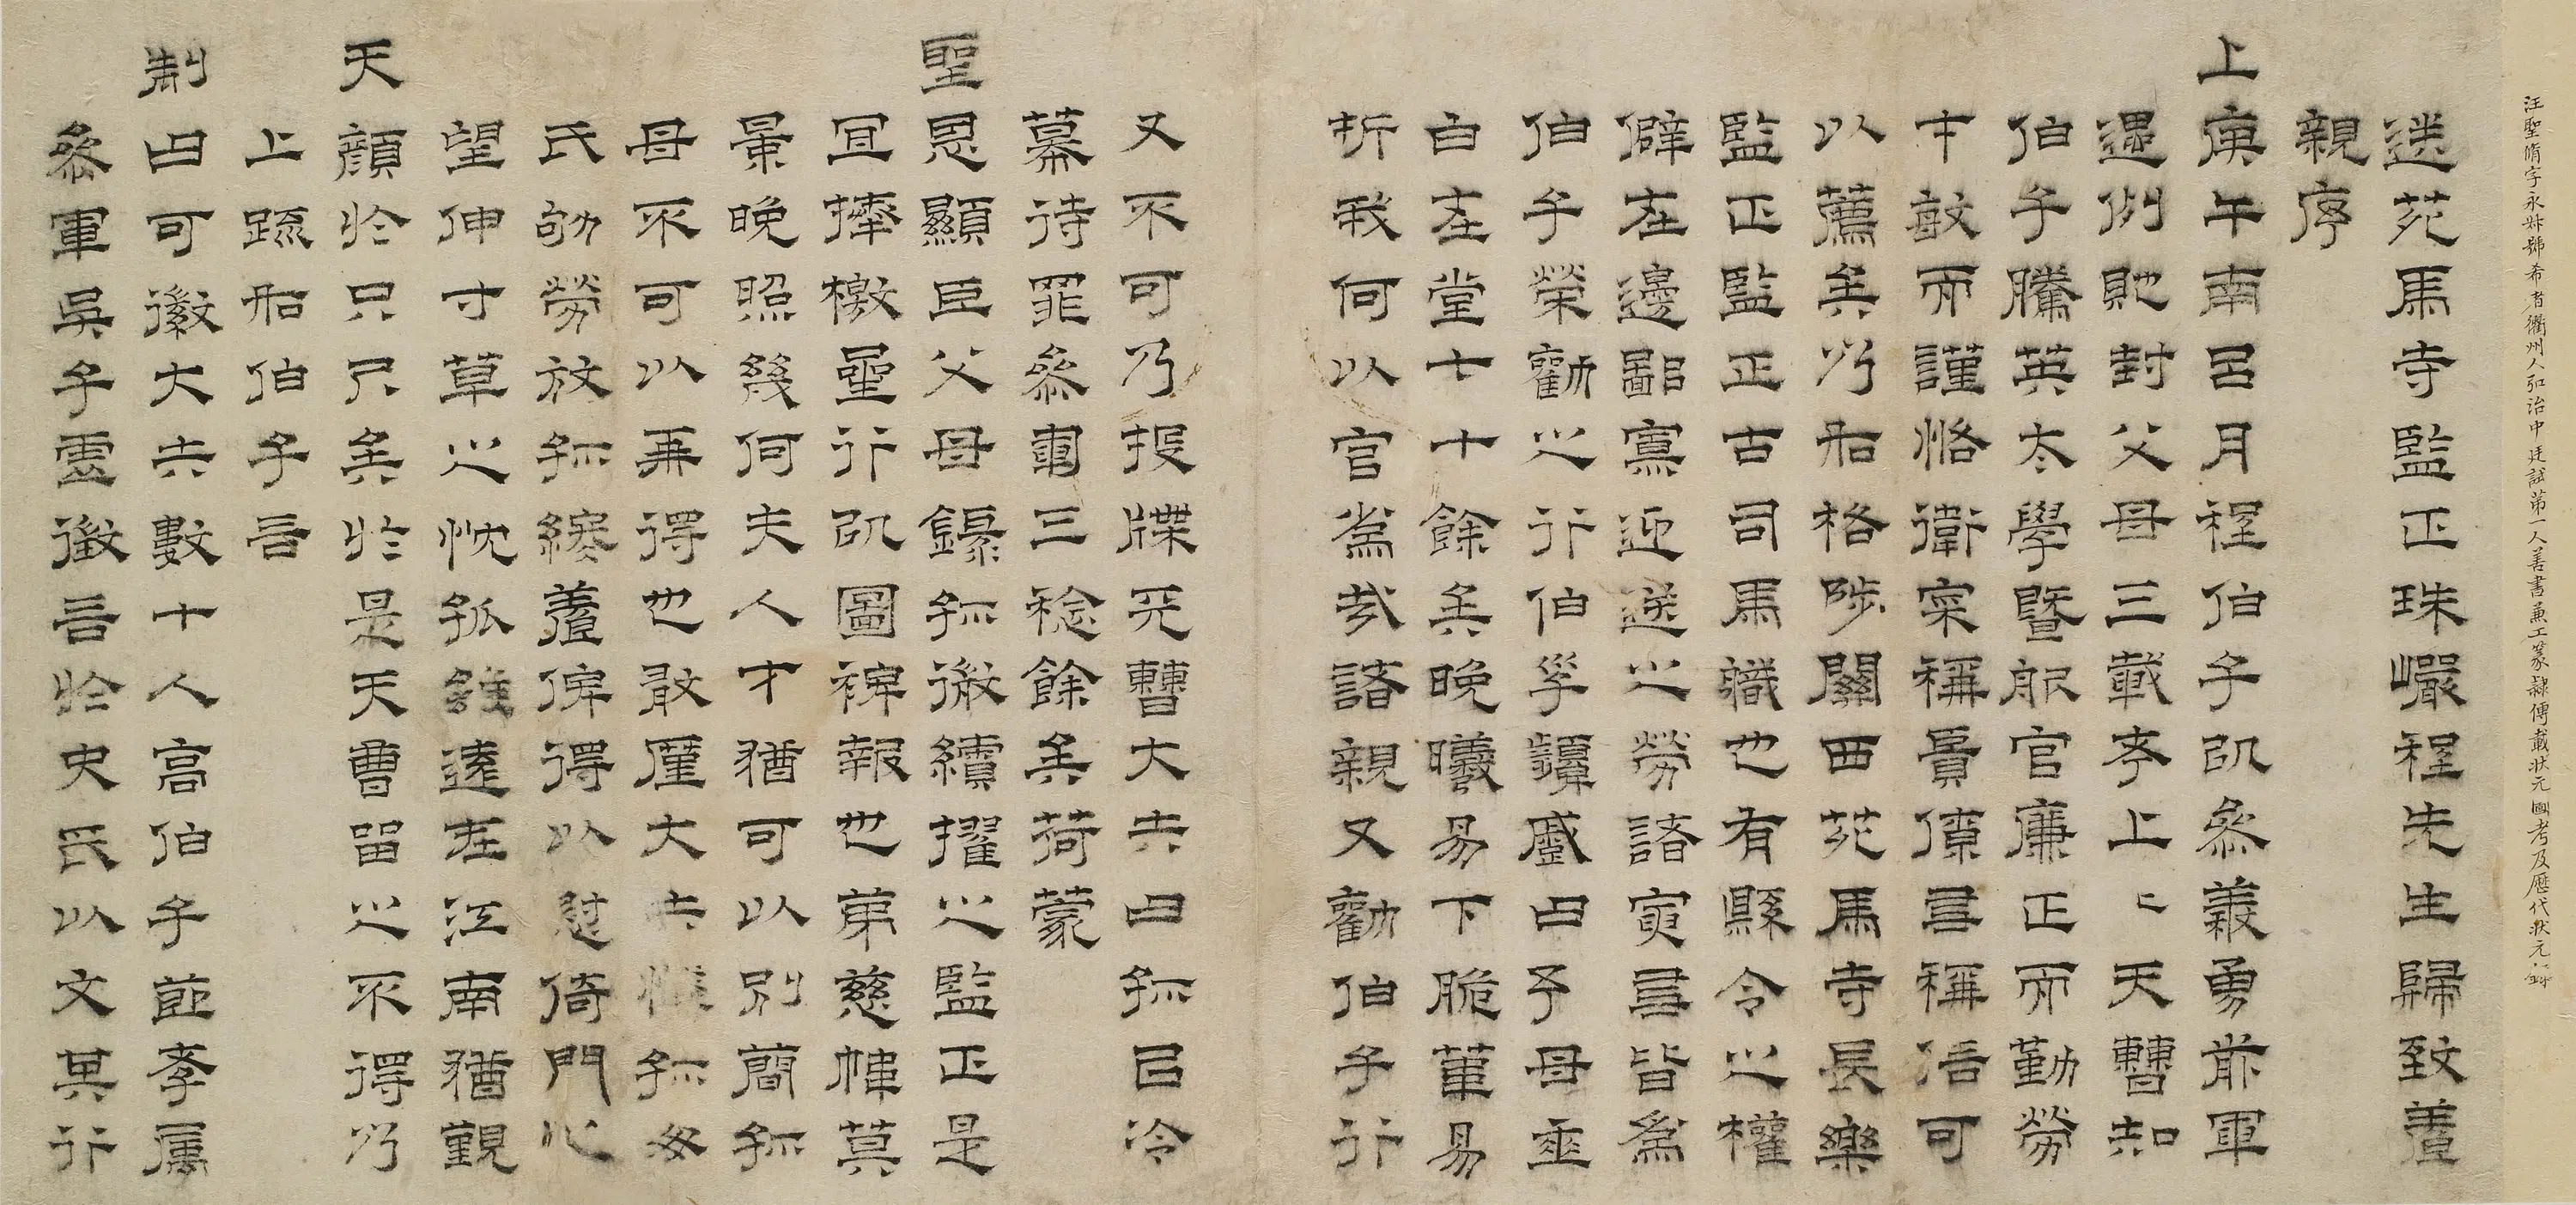 汪聖脩字永妣號希者衢州人弘治中廷試第一人善書兼工篆隸傳載狀元圖考及歷代狀元錄
送苑馬寺監正珠巘程先生歸致養
親序
上庚午南呂月程伯子即參義勇前軍
遇例貤封父母三載考上上天曹知
伯子騰英太學暨服官廉正而勤勞
中敏而謹恪衛寀稱賢僚稱可
以薦矣乃如格陟關西苑馬寺長樂
監正監正古司馬職也有縣令之權
僻在邊鄙寡迎送之勞諸寅皆為
伯子榮勸之行伯孚顰蹙曰予母垂
白在堂七十餘矣晚曦易下脆菫易
折我何以官為哉諸親又勸伯子行
又不可乃投牒天曹大夫曰已冷
幕待罪參軍三稔餘矣荷蒙
聖恩顯臣父母錄微績擢之監正是
宜捧檄星行即圖裨報也第慈幃莫
景晚照幾何夫人才猶可以別簡
母不可以再得也敢厪大夫惟
氏劬勞放終養俾得以慰倚門心
望伸寸草之忱孤雖遠在江南猶覲
天顏於只尺矣於是天曹留之不得乃
上疏如伯子言
制曰可徽大夫數十人高伯子節孝屬
參軍吳子雲徵言於史氏以文其行